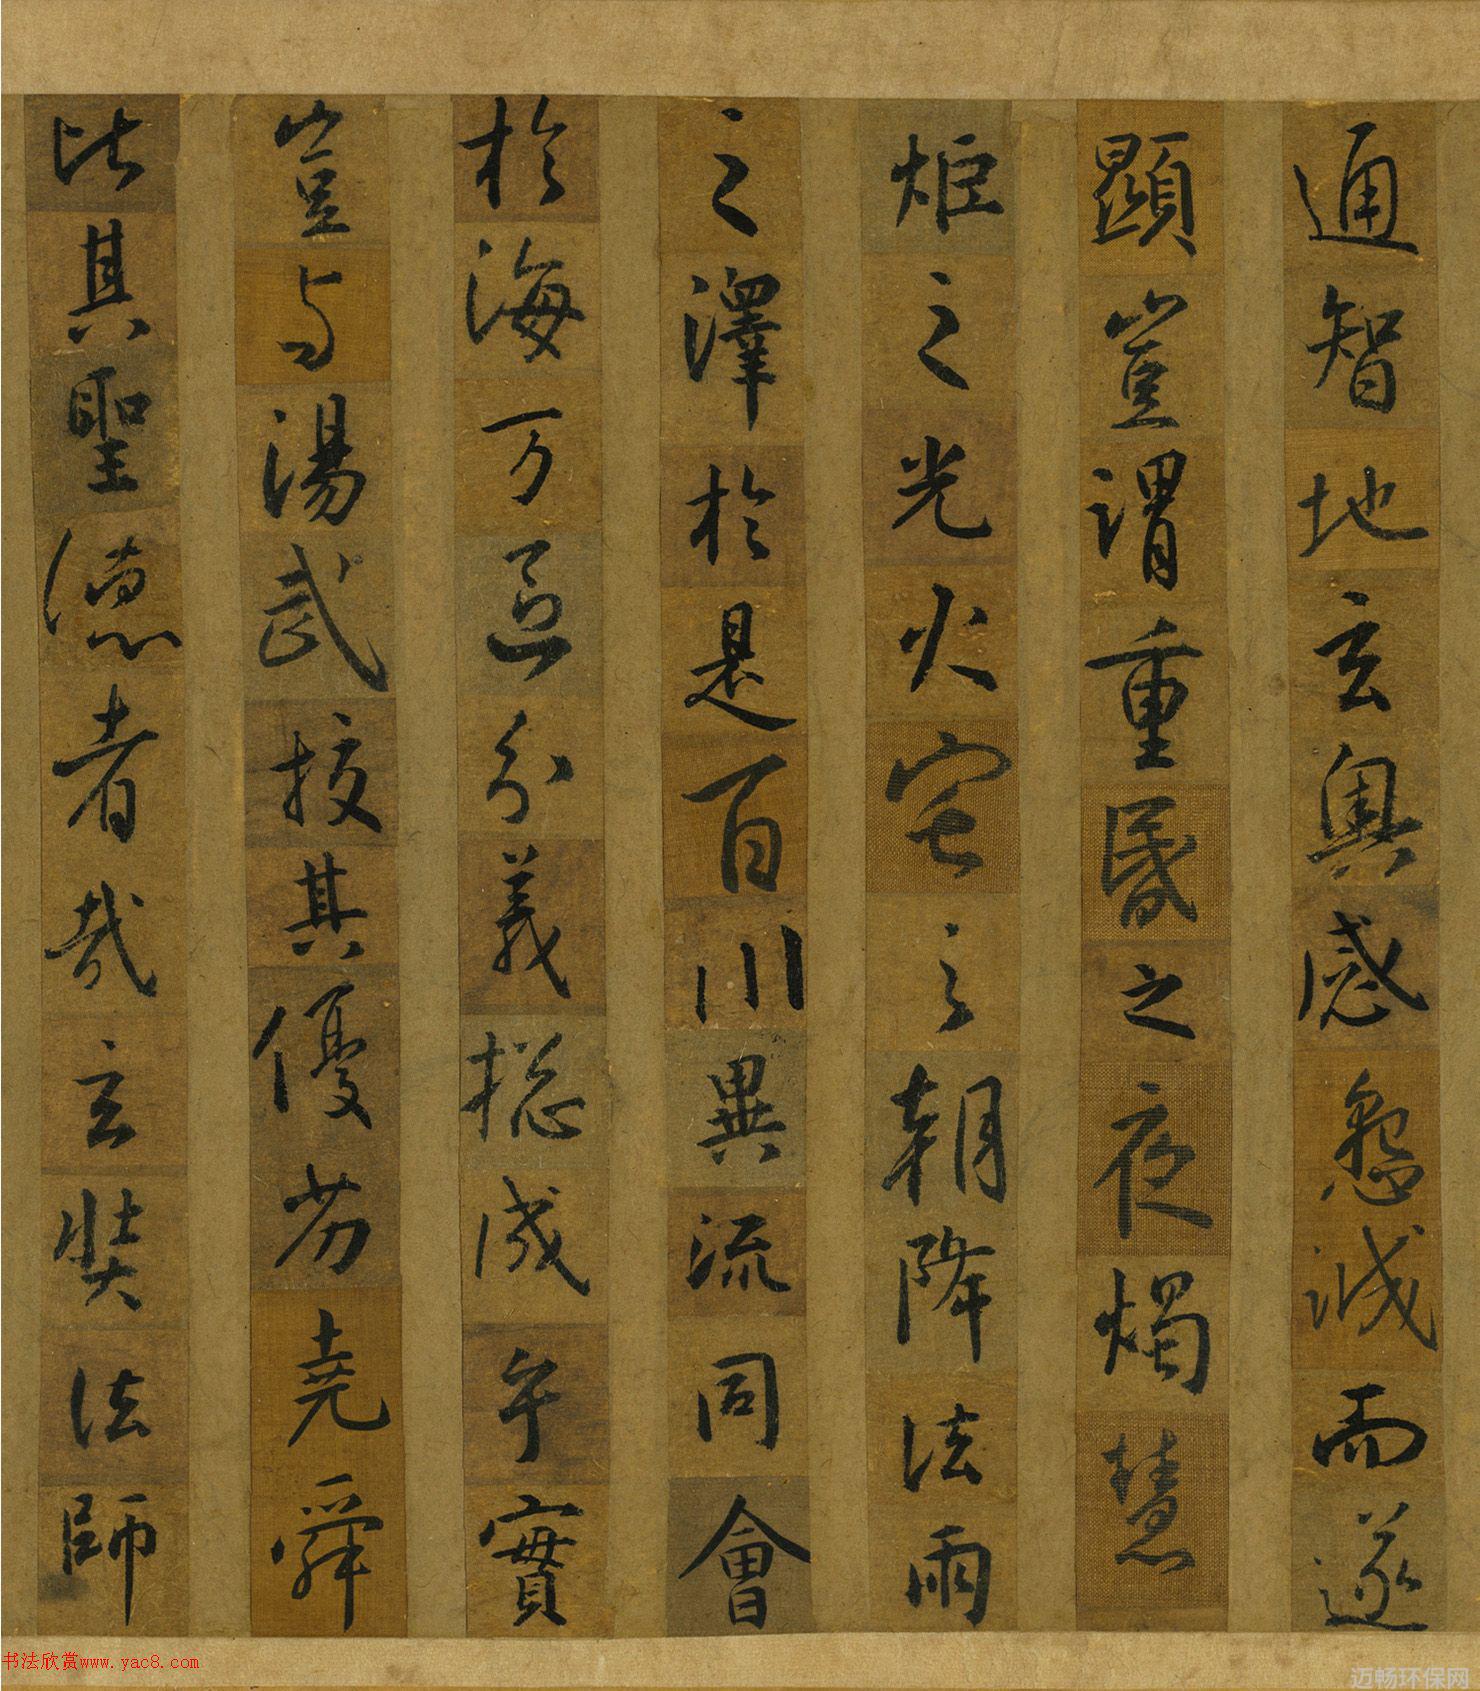 通智地玄奥感愆誠而遂
顯豈謂重昏之夜燭慧
炬之光火宅之朝降法雨
之澤於是百川異流同會
於海万區分義揔成乎實
豈与湯武挍其優劣堯舜
比其聖德者哉玄奘法師
书法欣赏www.yac8.com
迈畅环保网